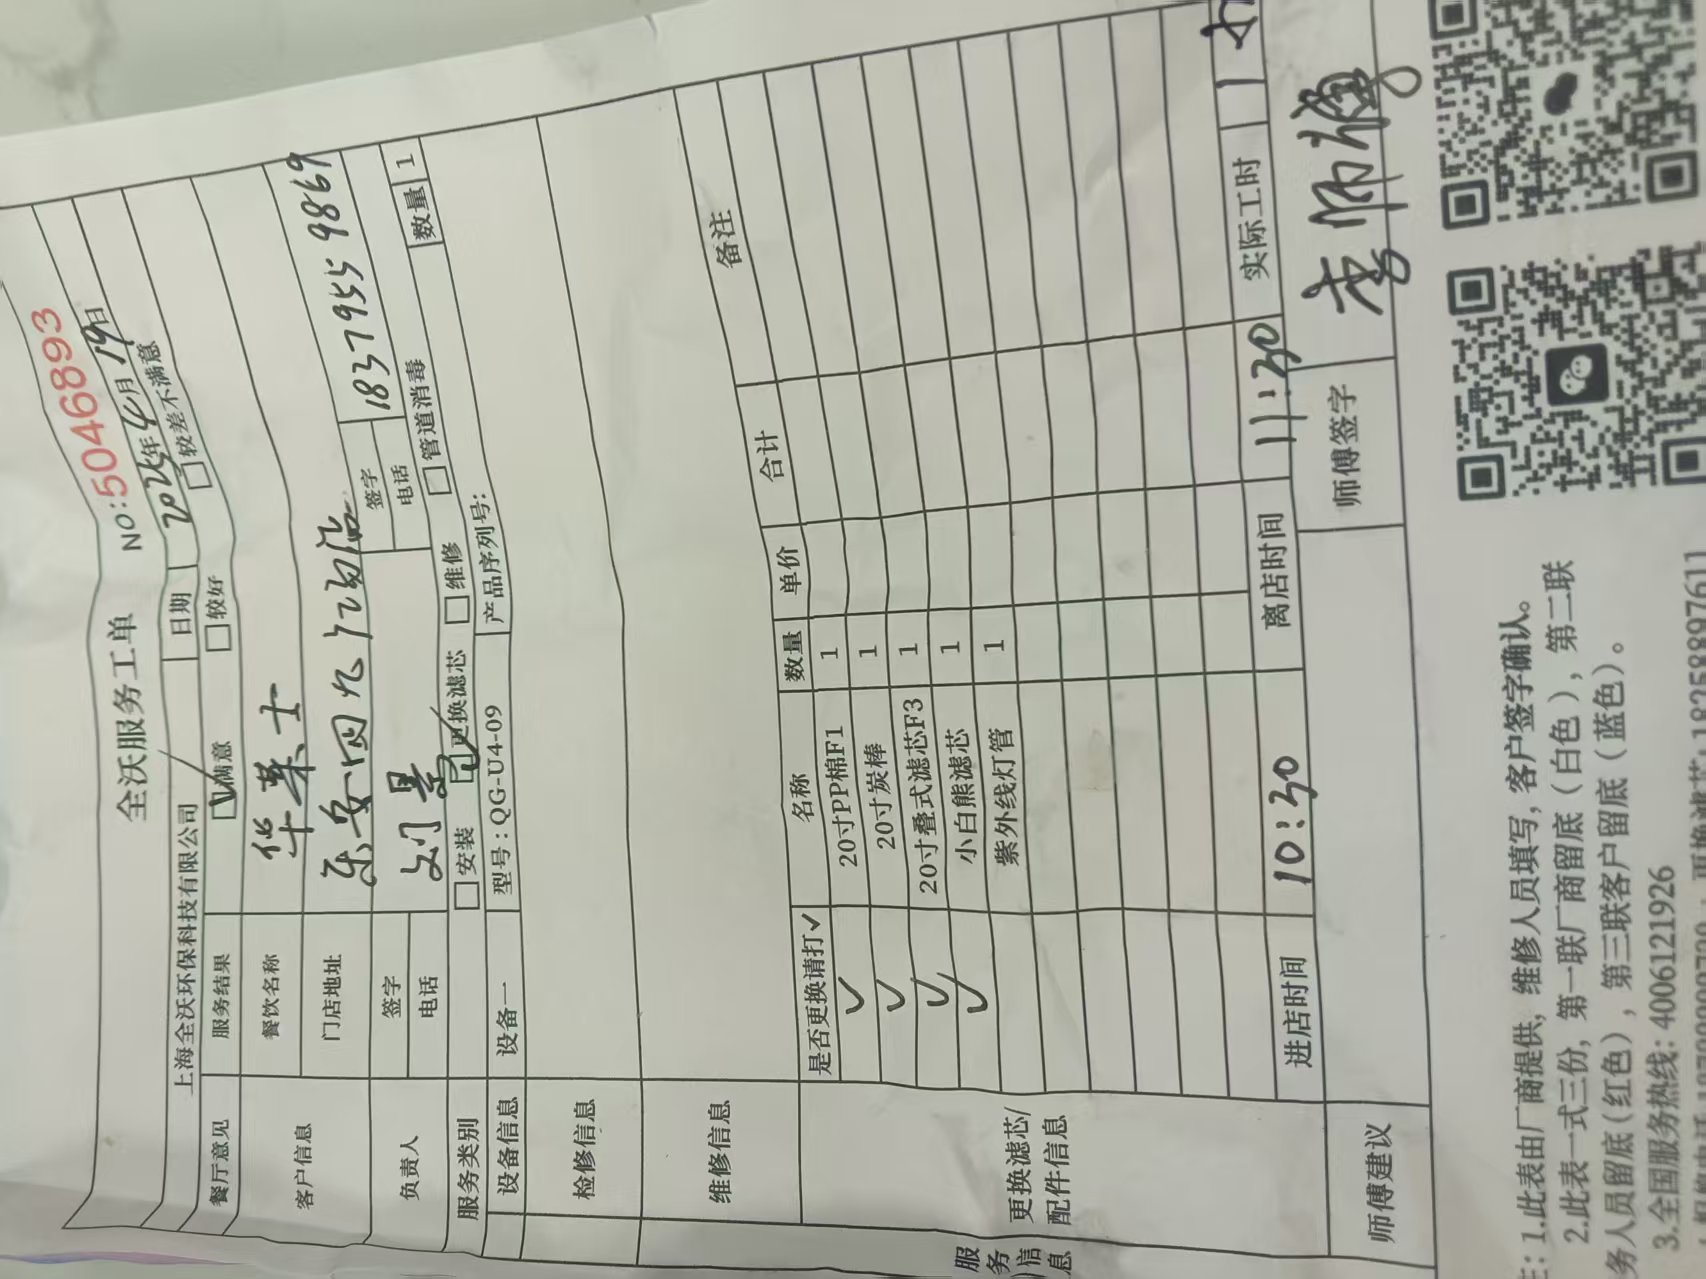 全沃服务工单 NO:5046893
上海全沃环保科技有限公司 日期 年4月19日
餐厅意见 服务结果 ☑满意 □较好 □较差不满意
客户信息 餐饮名称 华莱士
门店地址 乐安四九
负责人 签字 签字
电话 电话 18379559869
服务类别 □安装 ☑更换滤芯 □维修 □管道消毒
设备信息 设备一 型号:QG-U4-09 产品序列号: 数量 1
检修信息
维修信息
服务信息
更换滤芯/配件信息
是否更换请打✓ 名称 数量 单价 合计 备注
✓ 20寸PP棉F1 1
✓ 20寸炭棒 1
✓ 20寸叠式滤芯F3 1
✓ 小白熊滤芯 1
紫外线灯管 1
进店时间 10:30 离店时间 11:30 实际工时 1
师傅建议 师傅签字 李师傅
1.此表由厂商提供,维修人员填写,客户签字确认。
2.此表一式三份,第一联厂商留底(白色),第二联
务人员留底(红色),第三联客户留底(蓝色)。
3.全国服务热线:4006121926